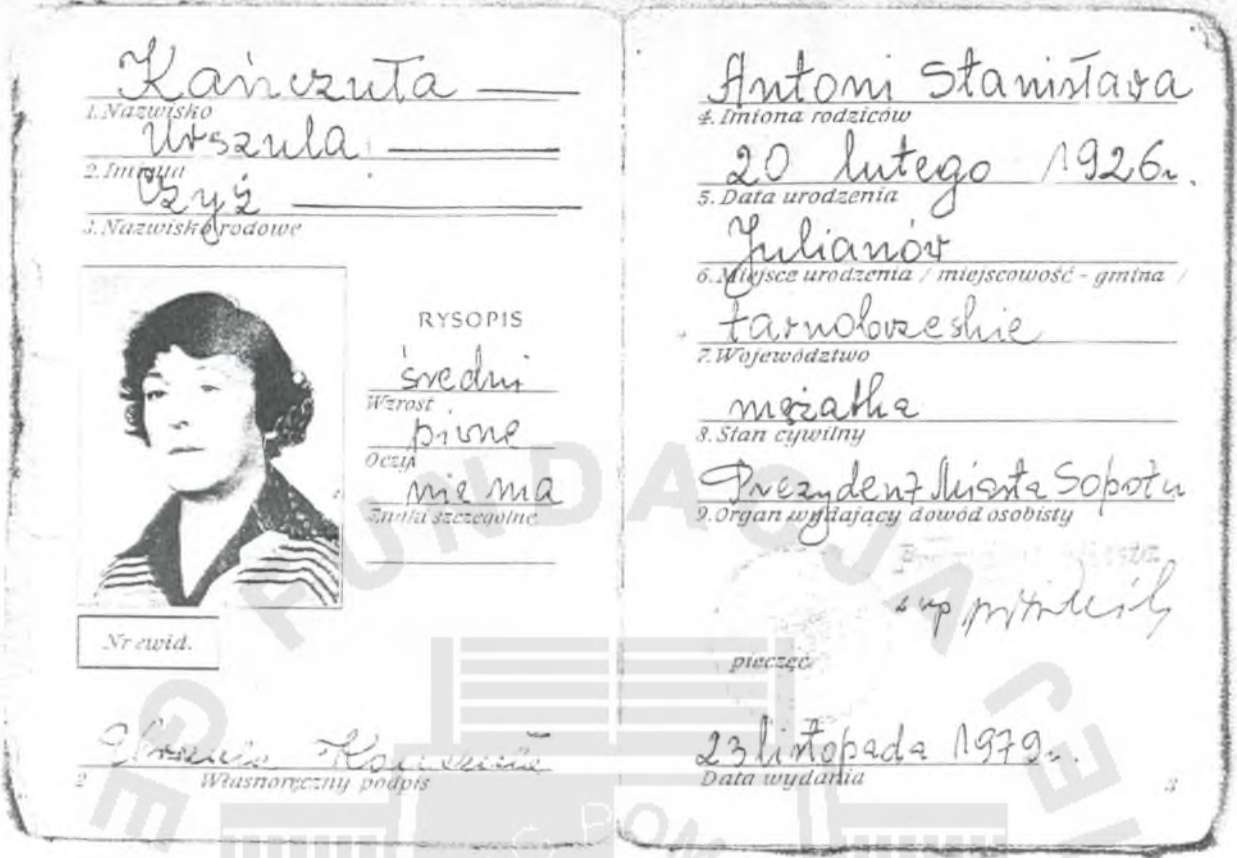 Kańczuła
1. Nazwisko
Urszula
2. Imiona
Czyż
3. Nazwisko rodowe
RYSOPIS
średni
Wzrost
piwne
Oczy
nie ma
Znaki szczególne
Nr ewid.
Urszula Kańczuła
2 Własnoręczny podpis
Antoni Stanisława
4. Imiona rodziców
20 lutego 1926 r.
5. Data urodzenia
Julianów
6. Miejsce urodzenia / miejscowość - gmina /
tarnobrzeskie
7. Województwo
mężatka
8. Stan cywilny
Prezydent Miasta Sopotu
9. Organ wydający dowód osobisty
Miasta
pieczęć
23 listopada 1979 r.
Data wydania
3
FUNDACJA